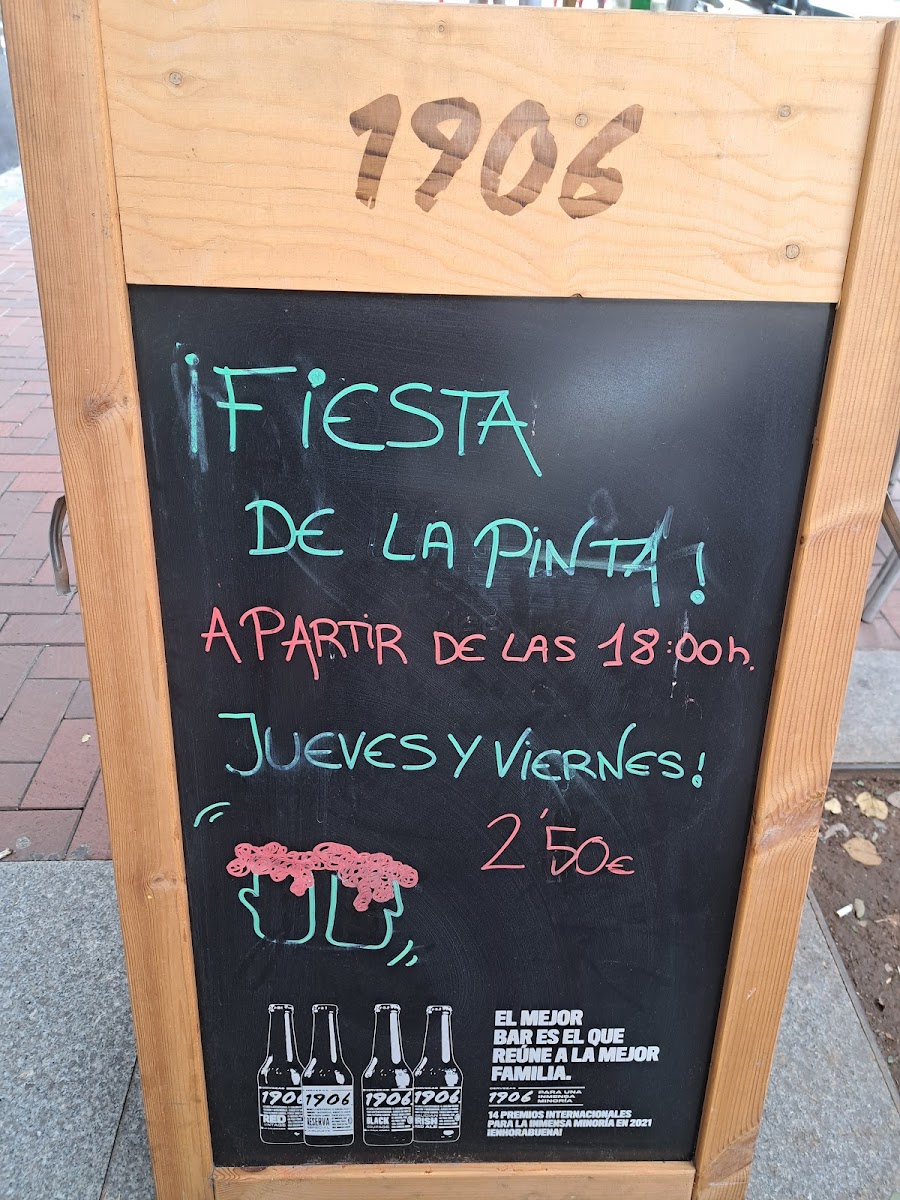 1906
¡FiESTA
DE LA PiNTA!
A PARTiR DE LAS 18:00h.
JUEVES Y ViERNES!
2'50€
1906
1906
1906
1906
RED
RESERVA
BLACK
IRISH
EL MEJOR
BAR ES EL QUE
REÚNE A LA MEJOR
FAMILIA.
1906
PARA UNA
INMENSA
MINORÍA
14 PREMIOS INTERNACIONALES
PARA LA INMENSA MINORÍA EN 2021
¡ENHORABUENA!